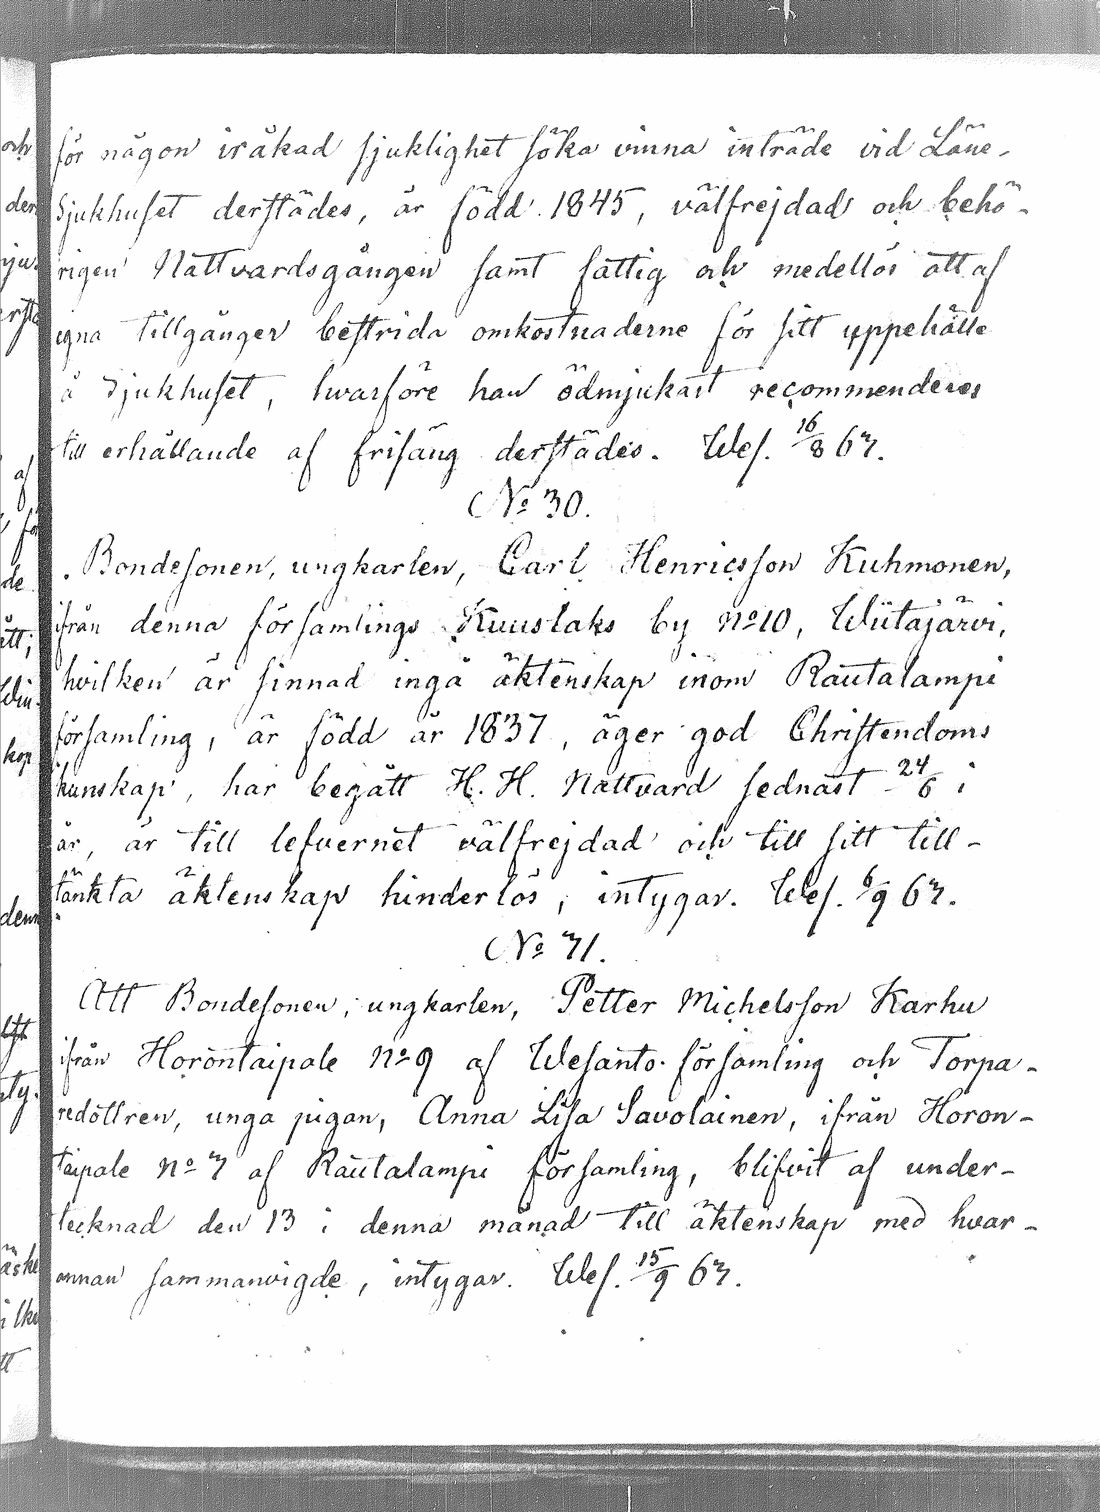 för någon iråkad sjuklighet söka vinna inträde vid Läne-
Sjukhuset derstädes, är född 1845, välfrejdad och behö-
rigen Nattvardsgången samt fattig och medellös att af
egna tillgånger bestrida omkostnaderne för sitt uppehälle
å Sjukhuset, hvarföre han ödmjukast recommenderes
till erhållande af frisäng derstädes. Wes. 16/8 67.
No 30.
Bondesonen, ungkarlen, Carl Henricsson Kuhmonen,
ifrån denna församlings Kuuslaks by No 10, Wiitajärvi,
hvilken är sinnad ingå äktenskap inom Rautalampi
församling, är född år 1837, äger god Christendoms
kunskap, har begått H. H. Nattvard sednast 24/6 i
år, är till lefvernet välfrejdad och till sitt till-
tänkta äktenskap hinderlös, intygar. Wes. 6/9 67.
No 71.
Att Bondesonen, ungkarlen, Petter Michelsson Karhu
ifrån Horontaipale No 9 af Wesanto församling och Torpa-
redottren, unga pigan, Anna Lisa Savolainen, ifrån Horon-
taipale No 7 af Rautalampi församling, blifvit af under-
tecknad den 13 i denna månad till äktenskap med hvar-
annan sammanvigde, intygar. Wes. 15/9 67.